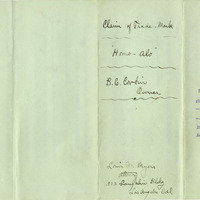 Claim of Trade-Mark
"Homo-Alo"
B. C. Corbin
Owner
Louis W. Myers
Atty
Laughlin Bldg
Los Angeles Cal.